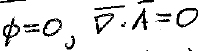 ϕ=0, ∇̅·A̅=0